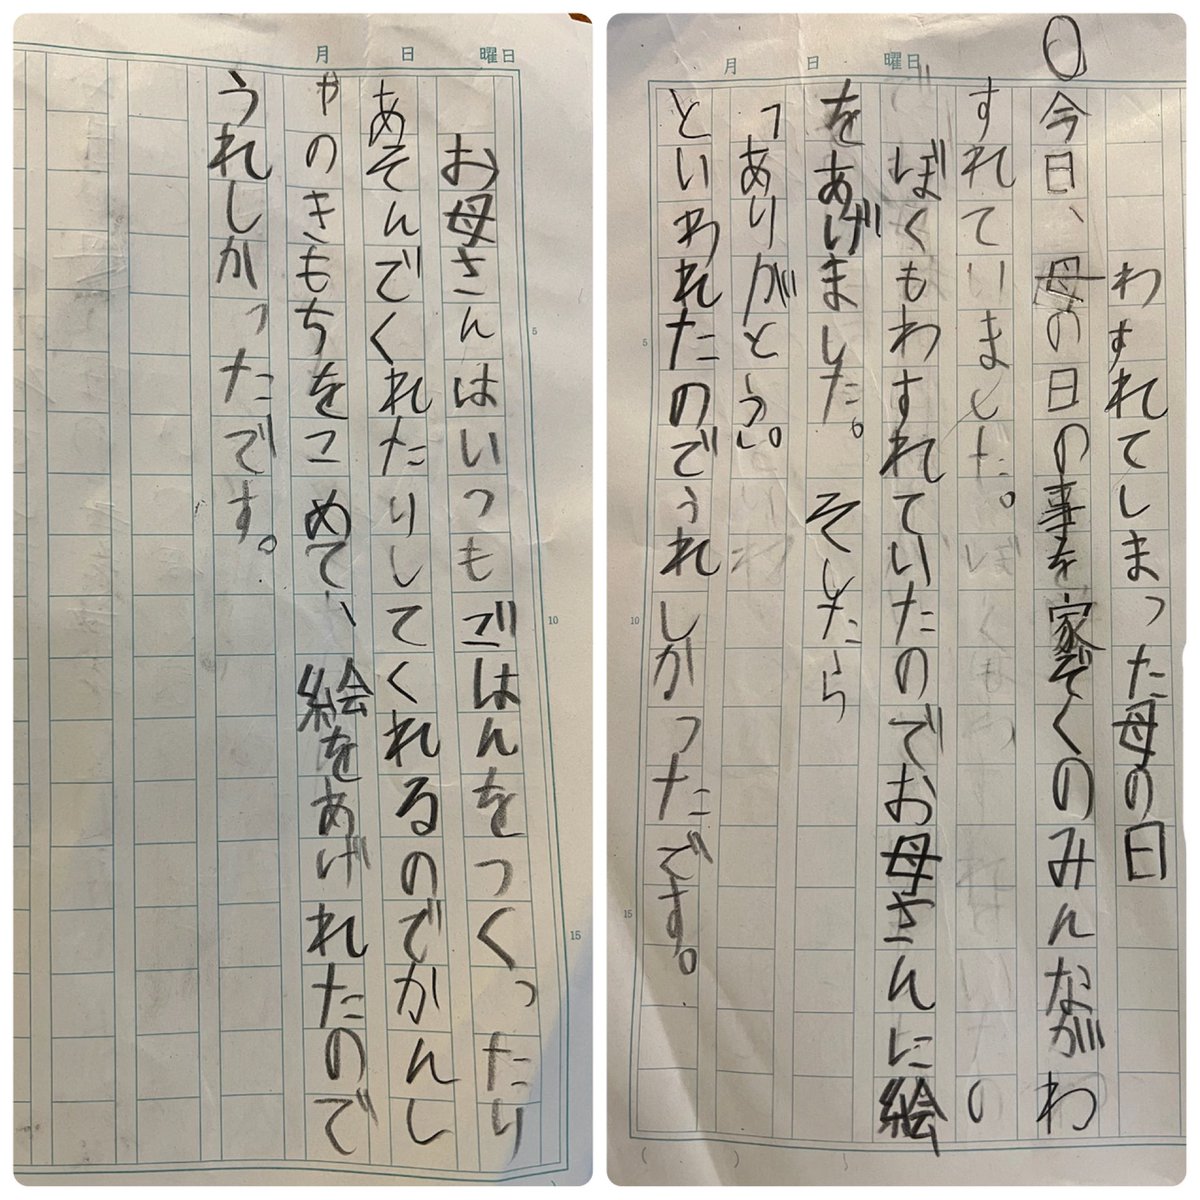 わすれてしまった母の日
〇今日、母の日の事を家ぞくのみんながわ
すれていました。
ぼくもわすれていたのでお母さんに絵
をあげました。そしたら
「ありがとう。
といわれたのでうれしかったです。
お母さんはいつもごはんをつくったり
あそんでくれたりしてくれるのでかんし
ゃのきもちをこめて、絵をあげれたので
うれしかったです。
月 日 曜日
月 日 曜日
5
10
15
5
10
15